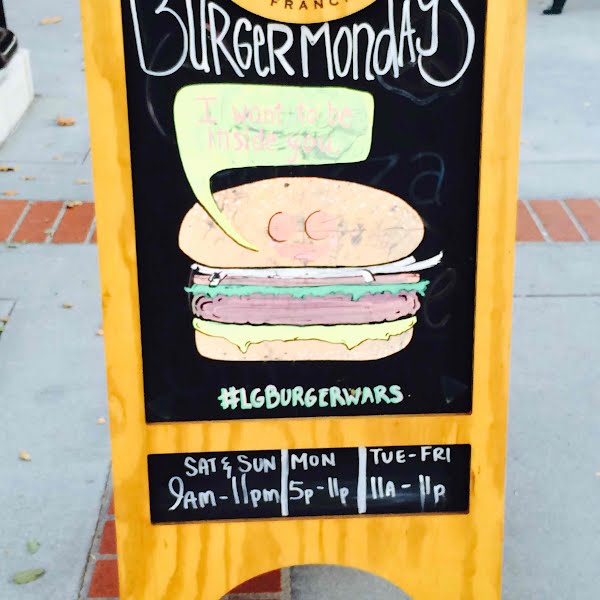 FRANC
BURGER MONDAYS
I want to be
inside you.
#LGBURGERWARS
SAT & SUN MON TUE-FRI
9AM-11pm 5p-11p 11A-11p